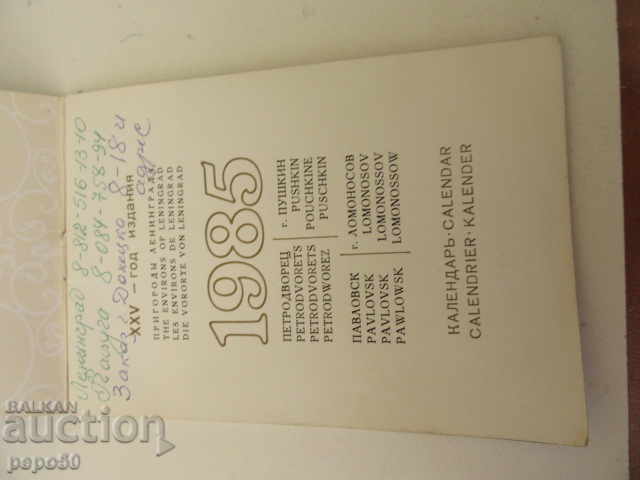 Ленинград 8-812-516-13-10
Калуга 8-084-758-94
Заказ г. Донецко 8-18 ч
адрес
XXV – год издания
ПРИГОРОДЫ ЛЕНИНГРАДА
THE ENVIRONS OF LENINGRAD
LES ENVIRONS DE LENINGRAD
DIE VORORTE VON LENINGRAD
1985
ПЕТРОДВОРЕЦ
PETRODVORETS
PETRODVORETS
PETRODWOREZ
г. ПУШКИН
PUSHKIN
POUCHKINE
PUSCHKIN
ПАВЛОВСК
PAVLOVSK
PAVLOVSK
PAWLOWSK
г. ЛОМОНОСОВ
LOMONOSOV
LOMONOSSOV
LOMONOSSOW
КАЛЕНДАРЬ · CALENDAR
CALENDRIER · KALENDER
BALKAN
auction
papo50